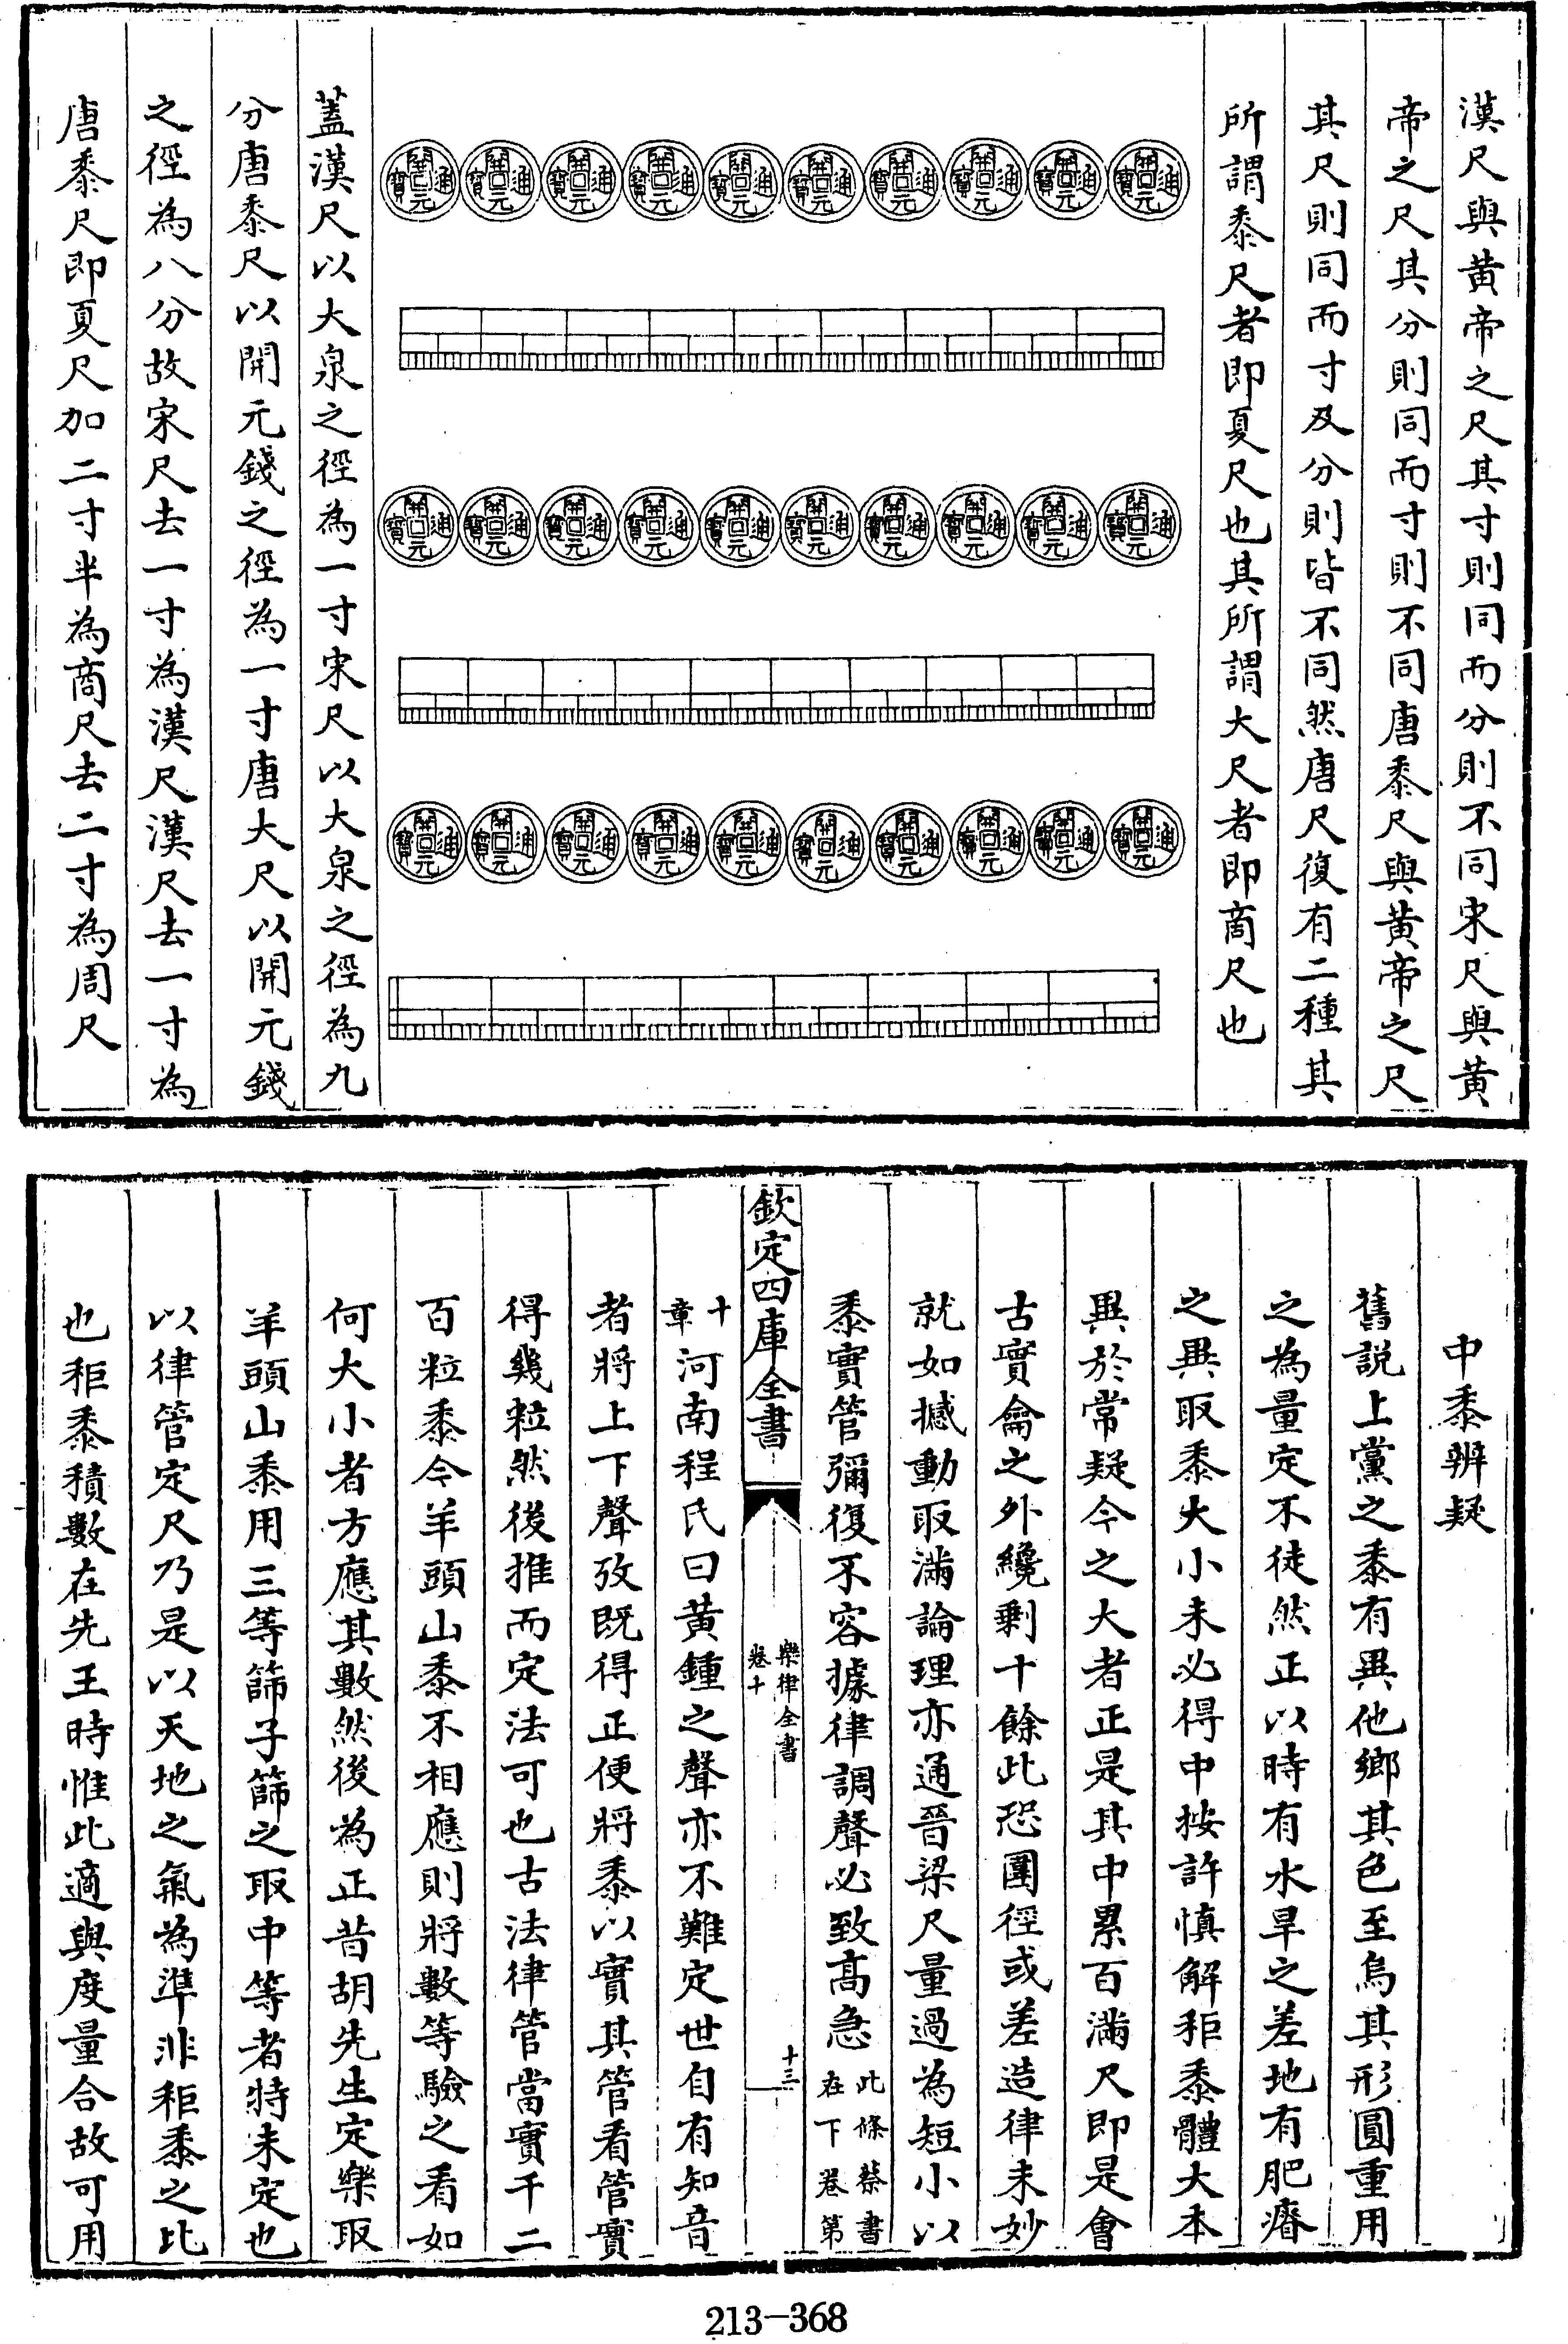 漢尺與黃帝之尺其寸則同而分則不同宋尺與黃
帝之尺其分則同而寸則不同唐黍尺與黃帝之尺
其尺則同而寸及分則皆不同然唐尺復有二種其
所謂黍尺者即夏尺也其所謂大尺者即商尺也
開元通寶 開元通寶 開元通寶 開元通寶 開元通寶 開元通寶 開元通寶 開元通寶 開元通寶 開元通寶
開元通寶 開元通寶 開元通寶 開元通寶 開元通寶 開元通寶 開元通寶 開元通寶 開元通寶 開元通寶
開元通寶 開元通寶 開元通寶 開元通寶 開元通寶 開元通寶 開元通寶 開元通寶 開元通寶 開元通寶
蓋漢尺以大泉之徑為一寸宋尺以大泉之徑為九
分唐黍尺以開元錢之徑為一寸唐大尺以開元錢
之徑為八分故宋尺去一寸為漢尺漢尺去一寸為
唐黍尺即夏尺加二寸半為商尺去二寸為周尺
中黍辨疑
舊説上黨之黍有異他鄉其色至烏其形圓重用
之為量定不徒然正以時有水旱之差地有肥瘠
之異取黍大小未必得中按許慎解秬黍體大本
異於常疑今之大者正是其中累百滿尺即是會
古實龠之外纔剩十餘此恐圍徑或差造律未妙
就如撼動取滿論理亦通晉梁尺量過為短小以
黍實管彌復不容據律調聲必致髙急此條蔡書在下卷第
欽定四庫全書
樂律全書
卷十
十三
十章河南程氏曰黃鍾之聲亦不難定世自有知音
者將上下聲攷既得正便將黍以實其管看管實
得幾粒然後推而定法可也古法律管當實千二
百粒黍今羊頭山黍不相應則將數等驗之看如
何大小者方應其數然後為正昔胡先生定樂取
羊頭山黍用三等篩子篩之取中等者特未定也
以律管定尺乃是以天地之氣為準非秬黍之比
也秬黍積數在先王時惟此適與度量合故可用
213-368